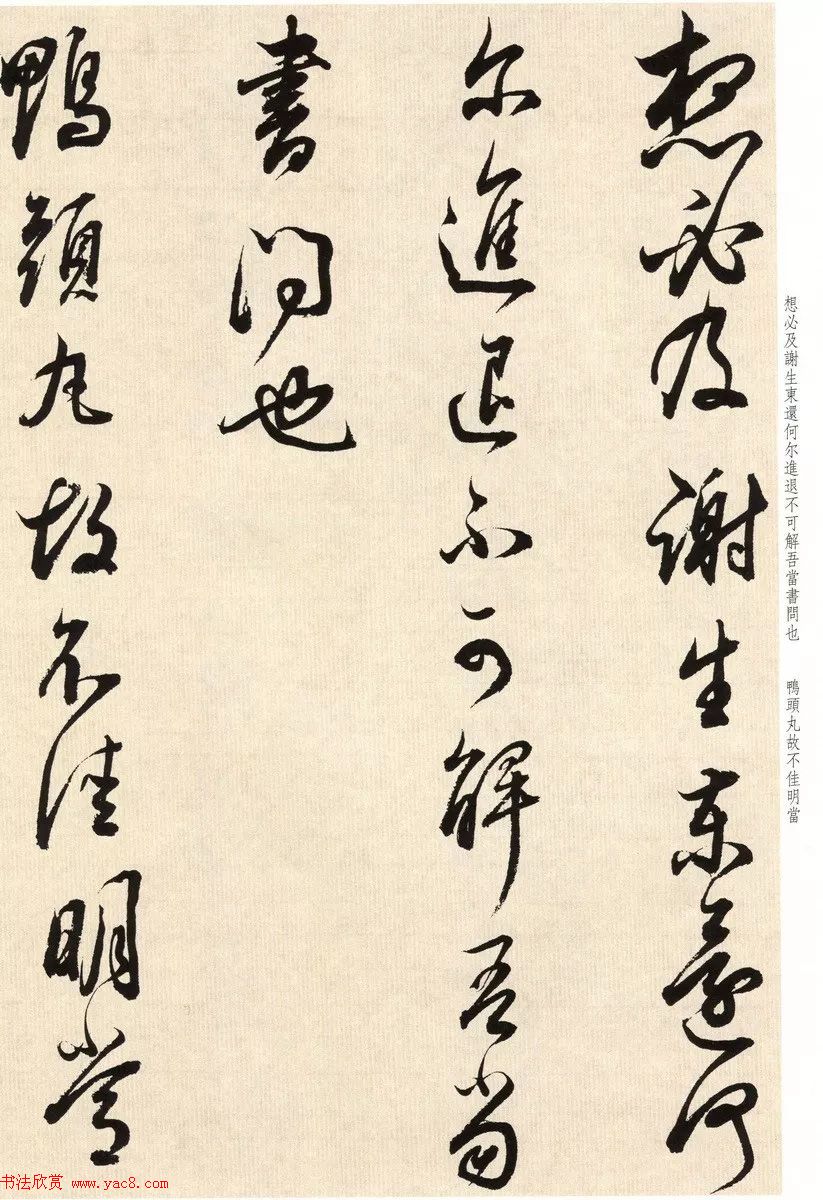 想必及謝生東還何
尔進退不可解吾當
書問也
鴨頭丸故不佳明當
想必及謝生東還何尔進退不可解吾當書問也 鴨頭丸故不佳明當
书法欣赏 www.yac8.com